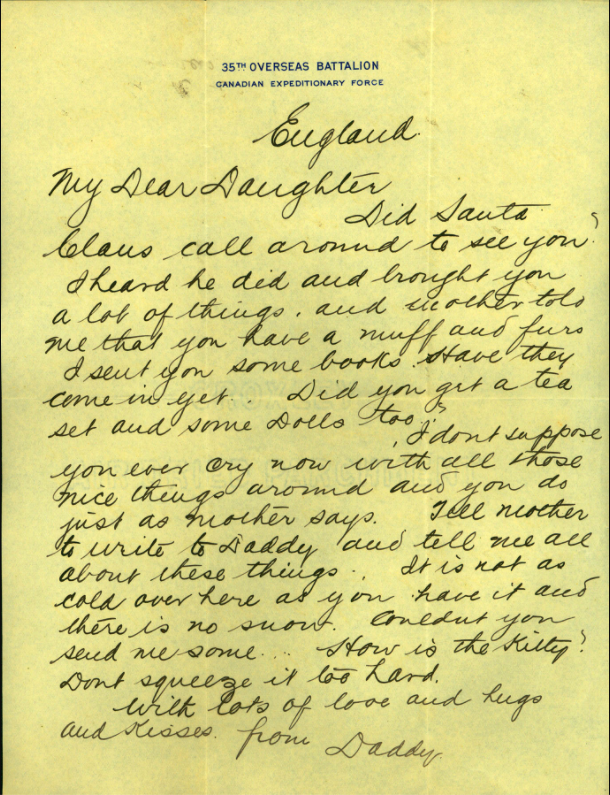 35TH OVERSEAS BATTALION
CANADIAN EXPEDITIONARY FORCE
England
My Dear Daughter
Did Santa
Claus call around to see you?
I heard he did and brought you
a lot of things. and mother told
me that you have a muff and furs
I sent you some books. Have they
come in yet.. Did you get a tea
set and some Dolls too?
I dont suppose
you ever cry now with all those
nice things around and you do
just as mother says. Tell mother
to write to Daddy and tell me all
about these things. It is not as
cold over here as you have it and
there is no snow. Couldnt you
send me some... How is the Kitty?
Dont squeeze it too hard.
With lots of love and hugs
and kisses. from Daddy.